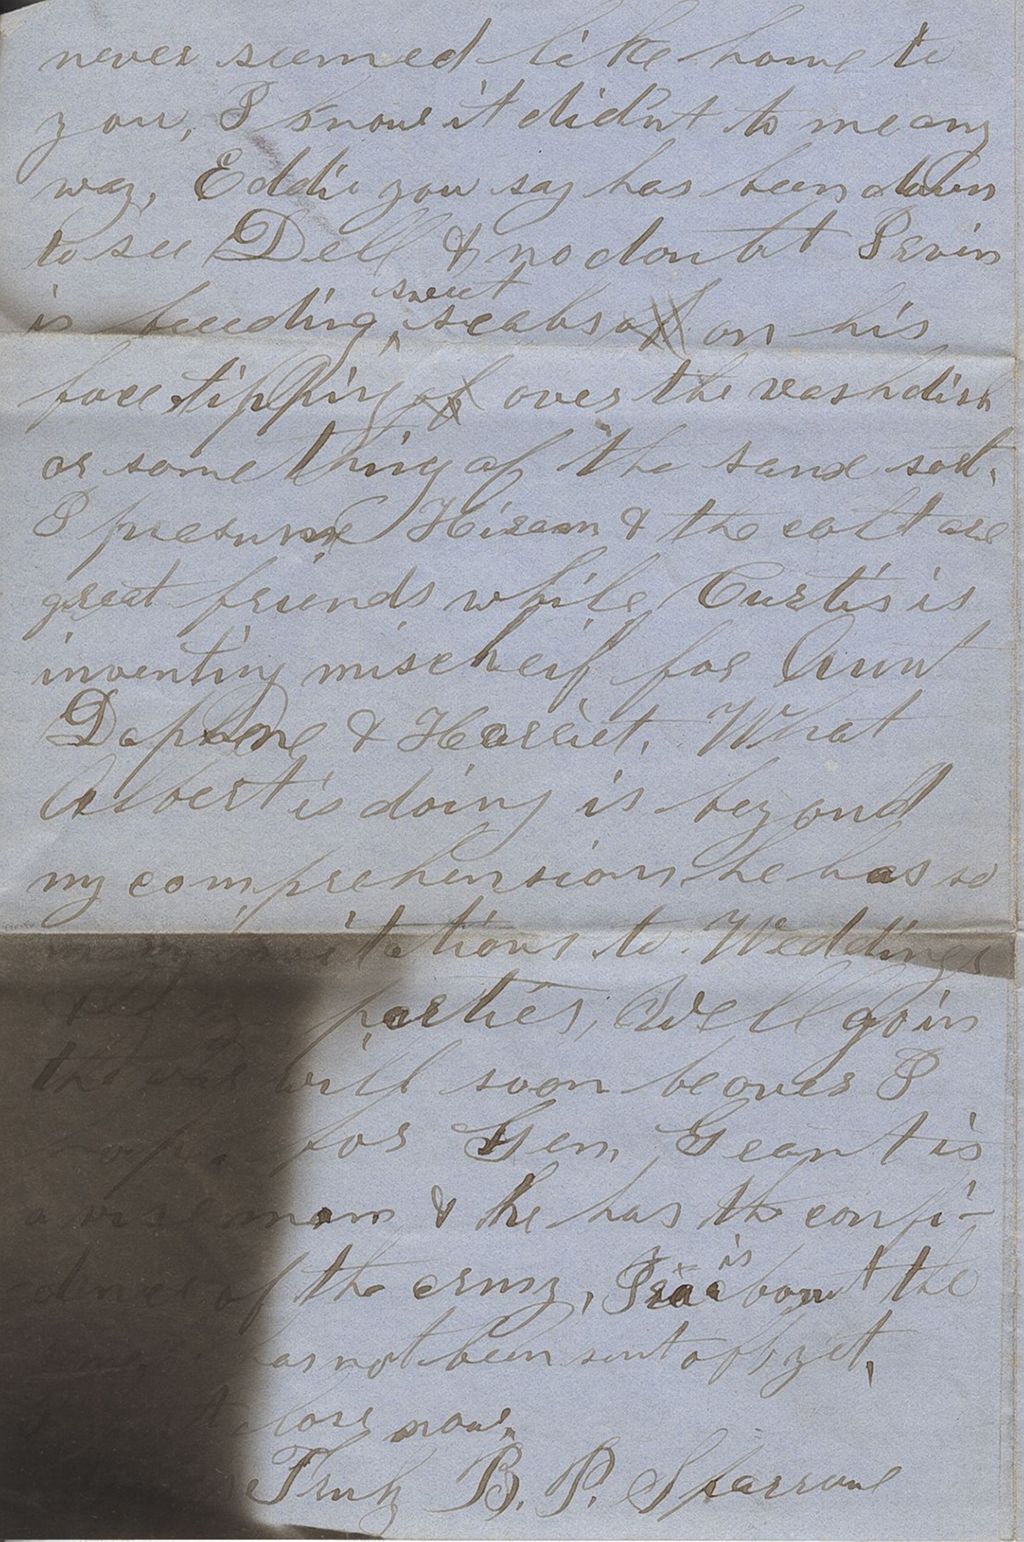 never seemed like home to
you, I know it didn't to me any
way, Eddie you say has been down
to see Dell & no doubt Irvin
is breeding sweet scabs on his
face tipping over the washdish
or something of the same sort.
I presume Hiram & the colt are
great friends while Curtis is
inventing mischeif for Aunt
Daphne & Harriet. What
Albert is doing is beyond
my comprehension he has so
many invitations to Weddings
parties, Well go in
the war will soon be over I
hope for Gen Grant is
a wise man & he has the confi-
dence of the army, Ira is about the
same has not been sent off yet,
I must close now.
Truly B. P. Sparrow